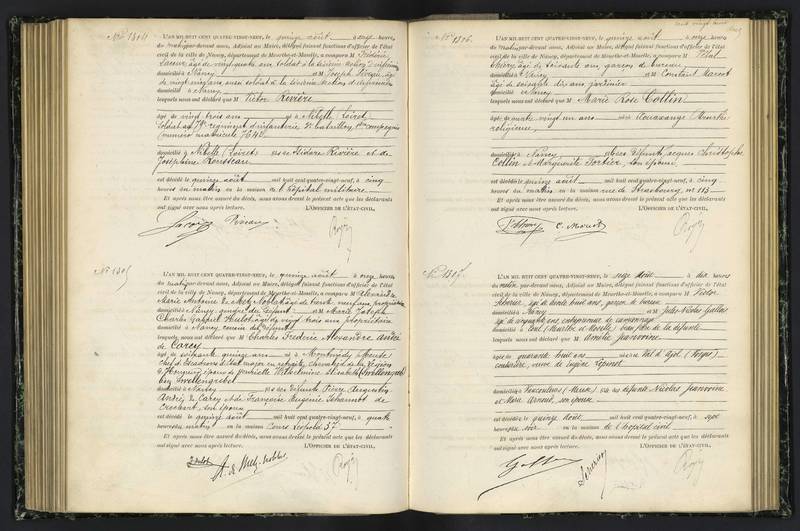 N° 1304
L'AN MIL HUIT CENT QUATRE-VINGT-NEUF, le quinze août à onze heures
du matin par-devant nous, Adjoint au Maire, délégué faisant fonctions d'officier de l'état
civil de la ville de Nancy, département de Meurthe-et-Moselle, a comparu M Frédéric
âgé de vingt quatre ans, soldat à la sixième section d'infirmiers
domicilié à Nancy et M Joseph âgé
de vingt cinq ans aussi soldat à la sixième section d'infirmiers
domicilié à Nancy
lesquels nous ont déclaré que M Victor Rivière
âgé de vingt trois ans né à Nibelle (Loiret)
Soldat au régiment d'infanterie 2e bataillon 1ère compagnie
(numéro matricule 7642)
domicilié à Nibelle (Loiret) fils de Isidore Rivière et de
Joséphine Rousseau
est décédé le quinze août mil huit cent quatre-vingt-neuf, à cinq
heures du matin en la maison de l'hôpital militaire
Et après nous être assuré du décès, nous avons dressé le présent acte que les déclarants
ont signé avec nous après lecture. L'OFFICIER DE L'ÉTAT-CIVIL,
N° 1305
L'AN MIL HUIT CENT QUATRE-VINGT-NEUF, le quinze août à onze heures
du matin par-devant nous, Adjoint au Maire, délégué faisant fonctions d'officier de l'état
civil de la ville de Nancy, département de Meurthe-et-Moselle, a comparu M Alexandre
Marie Antoine de Metz Noblat âgé de trente neuf ans, propriétaire
domicilié à Nancy, gendre du défunt et M Marie Joseph
Charles Gabriel Hulot âgé de vingt trois ans propriétaire
domicilié à Nancy, cousin du défunt
lesquels nous ont déclaré que M Charles Frédéric Alexandre André
de Carcy
âgé de soixante quinze ans né à Montmédy (Meuse)
chef d'Escadrons d'Etat major en retraite, chevalier de la Légion
d'Honneur époux de Henriette Wilhelmine Elisabeth
domicilié à Nancy fils de défunts Pierre Augustin
André de Carcy et de Françoise Eugénie Jehannot de
Crochart, son épouse
est décédé le quinze août mil huit cent quatre-vingt-neuf, à quatre
heures du matin en la maison Cours Léopold 37
Et après nous être assuré du décès, nous avons dressé le présent acte que les déclarants
ont signé avec nous après lecture. L'OFFICIER DE L'ÉTAT-CIVIL,
A. de Metz-Noblat
N° 1306
L'AN MIL HUIT CENT QUATRE-VINGT-NEUF, le quinze août à onze heures
du matin par-devant nous, Adjoint au Maire, délégué faisant fonctions d'officier de l'état
civil de la ville de Nancy, département de Meurthe-et-Moselle, a comparu M Vital
Thirry, âgé de soixante ans, garçon de bureau
domicilié à Nancy et M Constant Marcot
âgé de soixante dix ans, jardinier
domicilié à Nancy
lesquels nous ont déclaré que M Marie Rose Collin
âgée de quatre vingt un ans née à Meurthe
religieuse,
domiciliée à Nancy fille de défunts Jacques Christophe
Collin et Marguerite Fortier, son épouse
est décédée le quinze août mil huit cent quatre-vingt-neuf, à cinq
heures du matin en la maison rue de Strasbourg, n° 113
Et après nous être assuré du décès, nous avons dressé le présent acte que les déclarants
ont signé avec nous après lecture. L'OFFICIER DE L'ÉTAT-CIVIL,
N° 1307
L'AN MIL HUIT CENT QUATRE-VINGT-NEUF, le seize août à dix heures
du matin par-devant nous, Adjoint au Maire, délégué faisant fonctions d'officier de l'état
civil de la ville de Nancy, département de Meurthe-et-Moselle, a comparu M Victor
âgé de trente huit ans, garçon de bureau
domicilié à Nancy et M Jules Nicolas Gallois
âgé de cinquante ans, entrepreneur de camionnage
domicilié à Toul (Meurthe et Moselle) beau frère de la défunte
lesquels nous ont déclaré que M Amélie Jeanvoine
âgée de quarante huit ans née à Val d'Ajol (Vosges)
couturière, veuve de Eugène
domiciliée à Vaucouleurs (Meuse) fille de défunts Nicolas Jeanvoine
et Marie Arnould, son épouse
est décédée le quinze août mil huit cent quatre-vingt-neuf, à sept
heures du soir en la maison de l'hôpital civil
Et après nous être assuré du décès, nous avons dressé le présent acte que les déclarants
ont signé avec nous après lecture. L'OFFICIER DE L'ÉTAT-CIVIL,